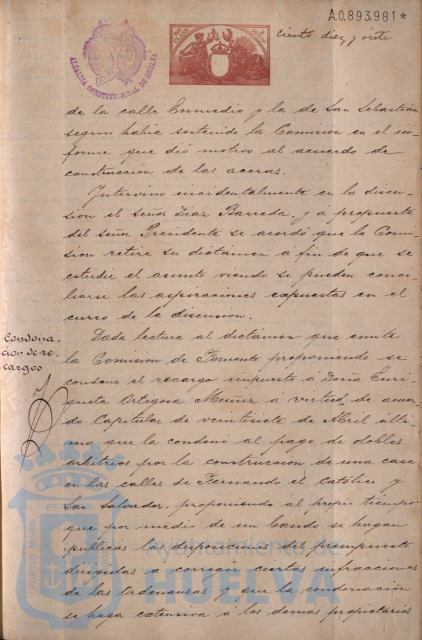 A.0.893.981*
ciento diez y siete
ALCALDIA CONSTITUCIONAL DE HUELVA
de la calle Enmedio y la de San Sebastián
segun habia sostenido la Comisión en el in-
forme que dió motivo al acuerdo de
construccion de las aceras.
Intervino incidentalmente en la discu-
sion el señor Diaz Barreda, y á propuesta
del señor Presidente se acordó que la Comi-
sion retire su dictamen á fin de que se
estudie el asunto viendo si pueden conci-
liarse las aspiraciones expuestas en el
curso de la discusion.
Condona-
cion de re-
cargos
Dada lectura al dictamen que emite
la Comision de Fomento proponiendo se
condone el recargo impuesto á Doña Enri-
queta Ortigosa Muñiz á virtud de acuer-
do Capitular de veintisiete de Abril últi-
mo que la condenó al pago de dobles
arbitrios por la construccion de una casa
en las calles de Fernando el católico y
San Salvador, proponiendo al propio tiempo
que por medio de un bando se hagan
publicas las disposiciones del presupuesto
dirigidas a corregir ciertas infracciones
de las Ordenanzas y que la condonación
se haga extensiva á los demas propietarios
PORTUS MARIS
Ayuntamiento de
HUELVA